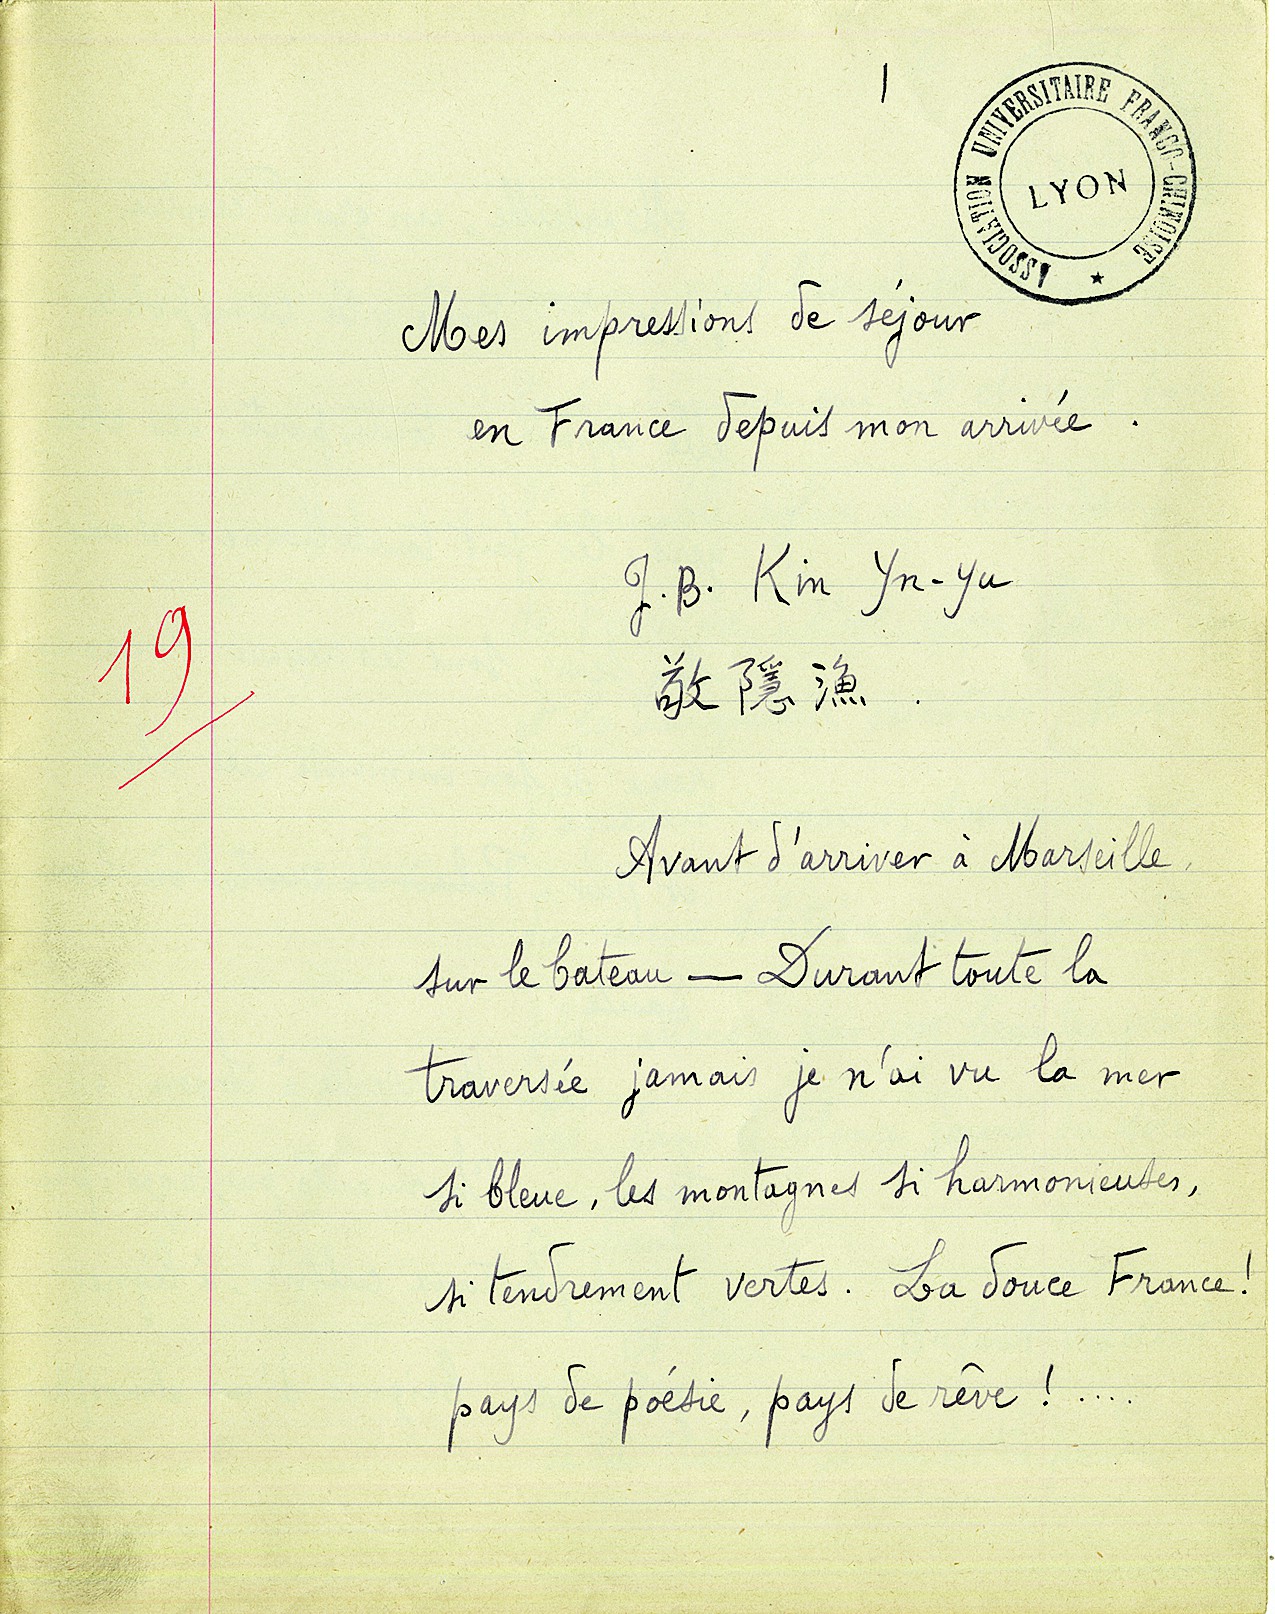 1
ASSOCIATION UNIVERSITAIRE FRANCO-CHINOISE
LYON
Mes impressions de séjour
en France depuis mon arrivée.
J.B. Kin Yn-Yu
敬隱漁.
19
Avant d'arriver à Marseille,
sur le bateau — Durant toute la
traversée jamais je n'ai vu la mer
si bleue, les montagnes si harmonieuses,
si tendrement vertes. La douce France!
pays de poésie, pays de rêve!....